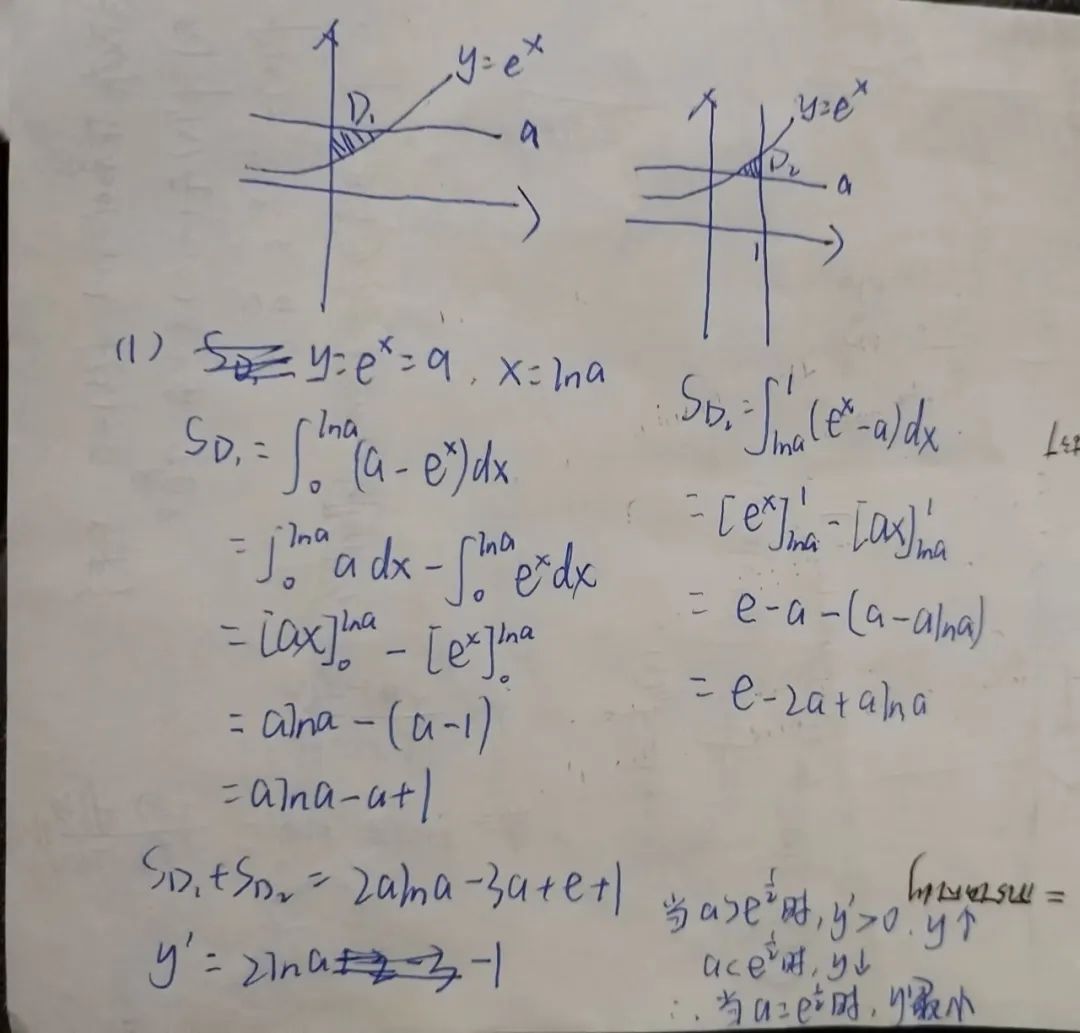 y=e^x
D₁
a
y=e^x
D₂
a
1
(1) y=e^x=a, x=lna
S_D₁=∫₀^lna (a-e^x)dx
=∫₀^lna a dx-∫₀^lna e^x dx
=[ax]₀^lna-[e^x]₀^lna
=alna-(a-1)
=alna-a+1
S_D₂=∫_lna^1 (e^x-a)dx
=[e^x]_lna^1-[ax]_lna^1
=e-a-(a-alna)
=e-2a+alna
S_D₁+S_D₂=2alna-3a+e+1
y'=2lna-1
当a>e^½时,y'>0.y↑
a<e^½时,y↓
∴当a=e^½时,y最小